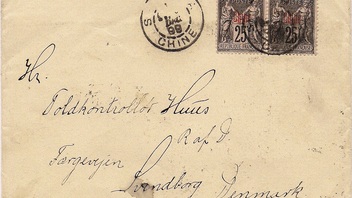 CHINE
25 25
Hr.
Toldkontrollør Huus
R. af D.
Færgevejen
Svendborg
Denmark